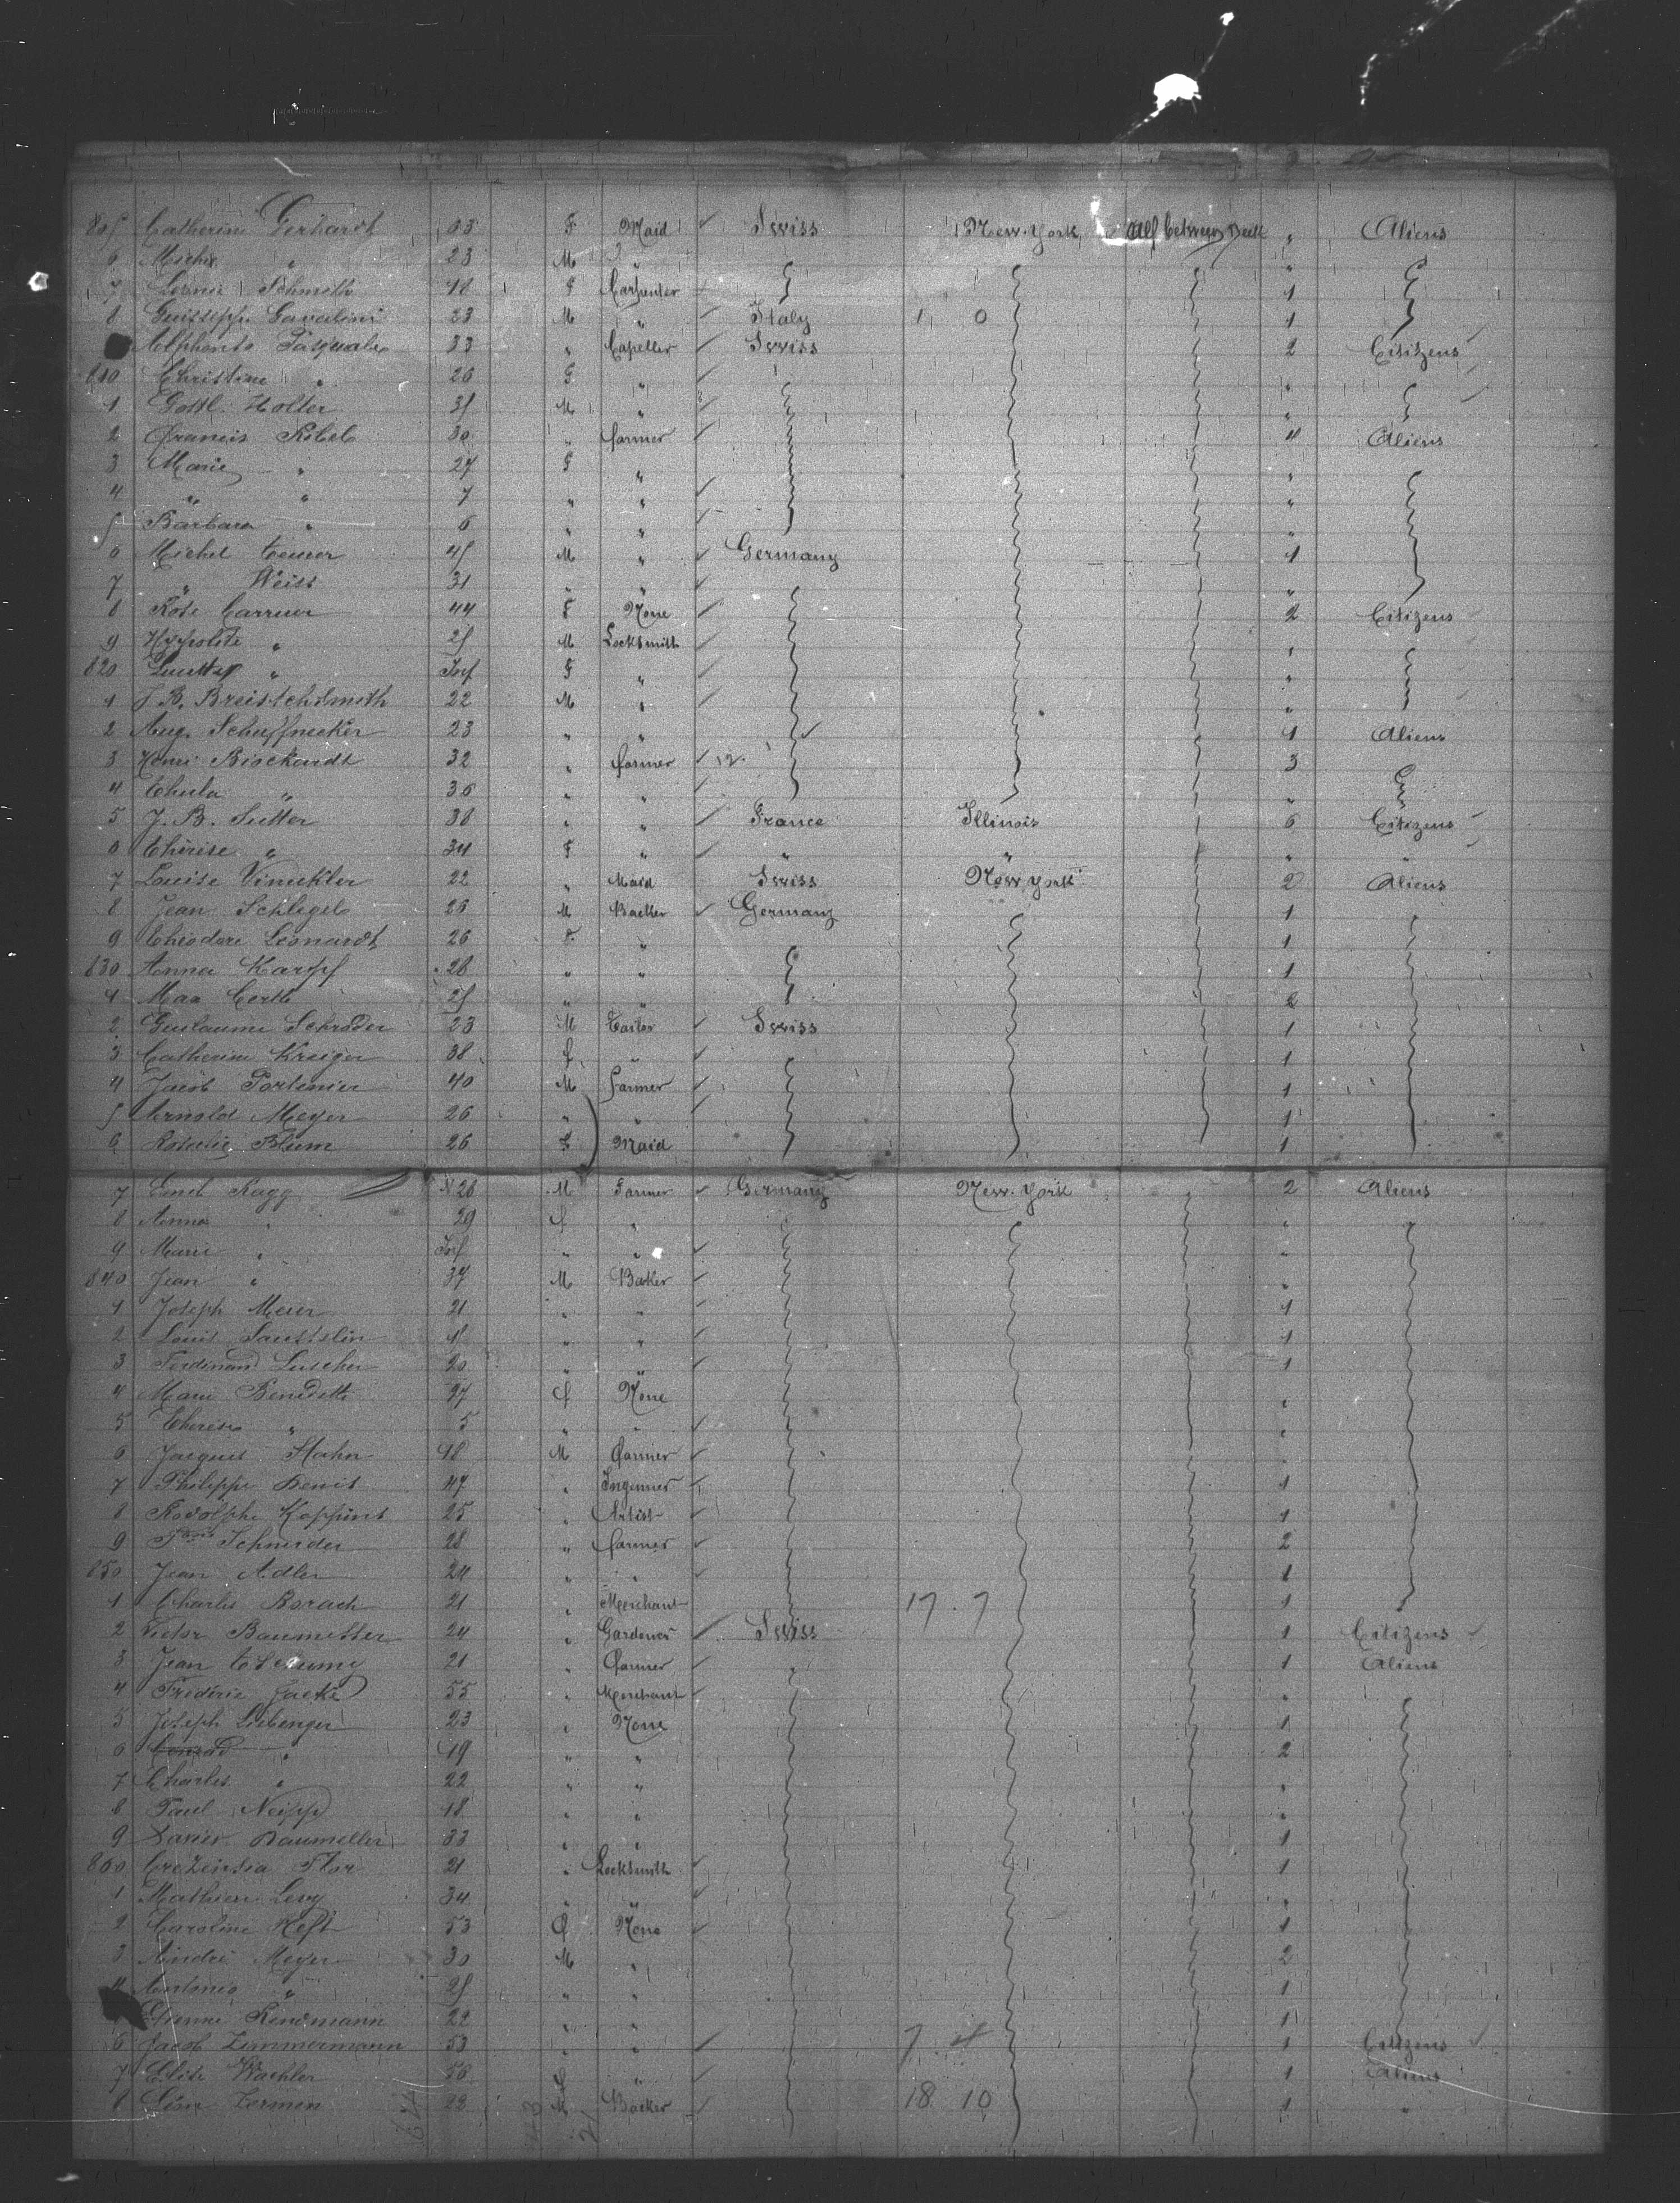 805 Catherine Gerhardt 63 F Maid ✓ Swiss New-York All between Deck " Aliens
6 Michel " 23 M " "
7 Schmith 18 F Carpenter 1
8 Guiseppe Gavalini 23 M " Italy 1 0 1
Alphonso Pasquale 33 " Capeller ✓ Swiss 2 Citizens
810 Christine " 26 F " ✓ "
1 Gottl. Holter 35 M " "
2 Francis Ribel 30 " farmer ✓ 4 Aliens
3 Marie " 27 F " "
4 " " 7 " " ✓ "
5 Barbara " 6 " " ✓ "
6 Michel 45 M " ✓ Germany 1
7 " Weiss 31 " " ✓ "
8 Rose Carrner 44 F None ✓ 2 Citizens
9 Hyppolite " 25 M Locksmith ✓ "
820 " Inf F " ✓ "
1 J. B. Breistchsmith 22 M " ✓ "
2 Aug. Schuffnecker 23 " " 1 Aliens
3 Henri Bisckardt 32 " farmer ✓ 12 3
4 Thula " 36 " " ✓ "
5 J. B. Sutter 38 " " ✓ France Illinois 6 Citizens
6 Thérise " 34 F " ✓ " " " "
7 Louise Vinukler 22 " Maid Swiss New York 2 Aliens
8 Jean Schlegel 26 M Backer ✓ Germany 1
9 Théodore Leonardt 26 F " 1
830 Anna Karpf 28 " " 1
1 Max 25 " " 2
2 Guilaume Schröder 23 M Tailor ✓ Swiss 1
3 Catherine Kreiger 38 f " ✓ 1
4 Jacob Portenier 40 M farmer ✓ 1
5 Arnold Meyer 26 " " ✓ 1
6 Rosalie Blum 26 f Maid 1
7 Emil Ragg 26 M Farmer ✓ Germany New-York 2 Aliens
8 Anna " 29 f " "
9 Marie " Inf " " ✓ "
840 Jean " 37 M Backer ✓ "
1 Joseph Meier 21 " " ✓ 1
2 Louis " " ✓ 1
3 Ferdinand Luscher 20 " " ✓ 1
4 Marie Benedette 27 f None "
5 Therese " 5 " " ✓ "
6 Jacques Hahn 18 M farmer ✓ "
7 Philippe Denis 47 " Ingenner ✓ 1
8 Rodolphe Koppins 25 " Artist ✓ 1
9 Schneider 28 " farmer ✓ 2
850 Jean Adler 24 " " ✓ 1
1 Charles Borach 21 " Merchant 17 . 7 1
2 Victor Baumetter 24 " Gardener ✓ Swiss 1 Citizens ✓
3 Jean 21 " farmer ✓ " 1 Aliens
4 Frédéric Jacke 55 " Merchant ✓ "
5 Joseph Liebenger 23 " None 1
6 Conrad " 19 " " 2
7 Charles " 22 " " "
8 Paul Neipp 18 " " "
9 Xavier Baumeller 33 " " 1
860 Flor 21 " Locksmith ✓ 1
1 Mathieu Levy 34 " " ✓ "
2 Caroline Heft 53 f None ✓ 1
3 André Meyer 30 M " 2
4 Antonio " 25 " " 1
Etienne Rindmann 22 " " 1
6 Jacob Zimmermann 53 " " ✓ 7 4 1 Citizens ✓
7 Elise Wachler 56 f " 1 Aliens
8 Zermen 22 M Backer ✓ 18 10 1 "